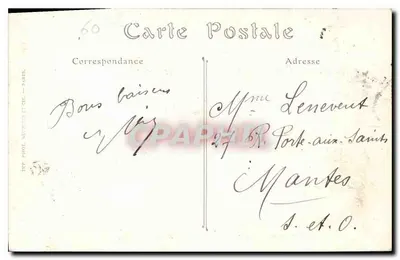 60
Carte Postale
Correspondance
Adresse
Bons baisers
Mme Lenevent
27 R. Porte-aux-Saints
Mantes
S. et O.
CPAPHIL